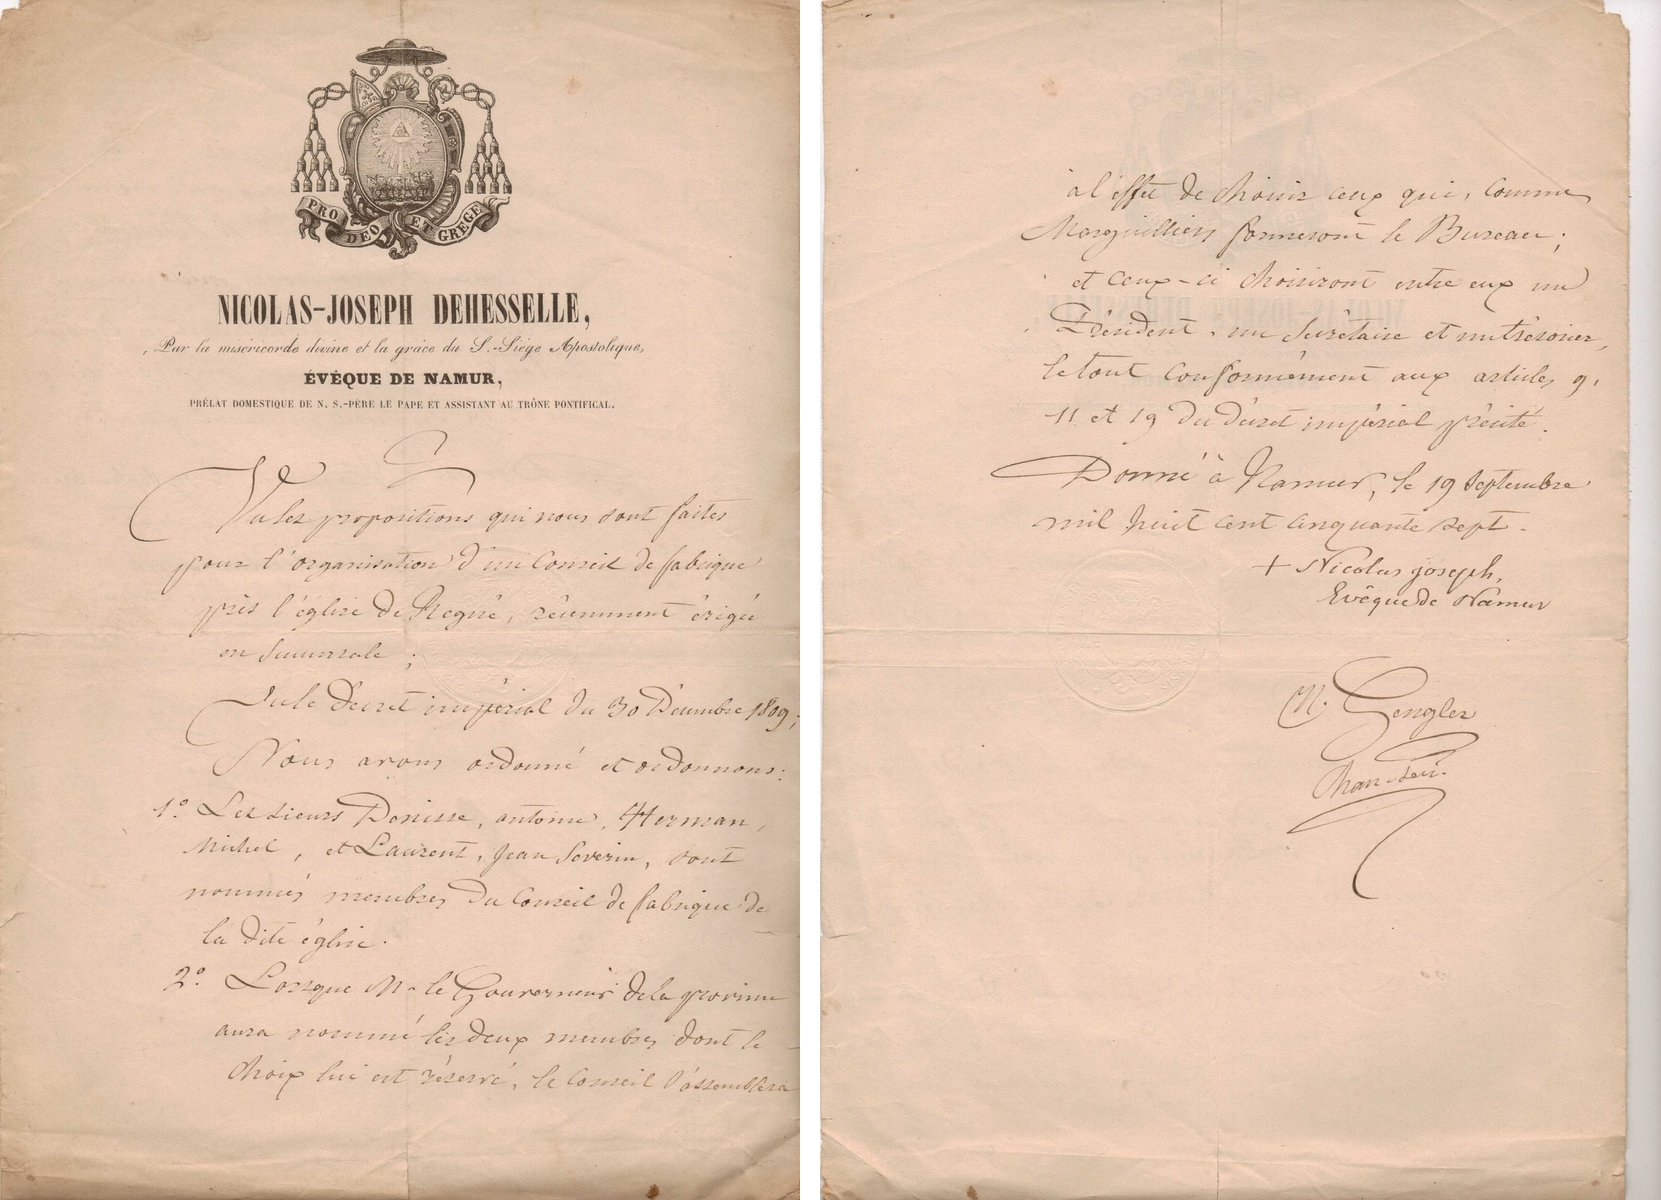 PRO DEO ET GREGE
NICOLAS-JOSEPH DEHESSELLE,
Par la miséricorde divine et la grâce du S.-Siége Apostolique,
ÉVÊQUE DE NAMUR,
PRÉLAT DOMESTIQUE DE N. S.-PÈRE LE PAPE ET ASSISTANT AU TRÔNE PONTIFICAL.
Vu les propositions qui nous sont faites
pour l'organisation d'un Conseil de fabrique
près l'église de Regné, récemment érigée
en succursale ;
Vu le Décret impérial du 30 Décembre 1809 ;
Nous avons ordonné et ordonnons :
1.º Les sieurs Denisse, antoine, Herman,
Michel, et Laurent, Jean Severin, sont
nommés membres du Conseil de fabrique de
la dite église.
2.º Lorsque Mr le Gouverneur de la province
aura nommé les deux membres dont le
choix lui est réservé, le Conseil s'assemblera
à l'effet de choisir ceux qui, comme
Marguilliers formeront le Bureau ;
et ceux-ci choisiront entre eux un
Président, un Secrétaire et un trésorier,
le tout conformément aux articles 9,
11 et 19 du décret impérial précité.
Donné à Namur, le 19 Septembre
mil huit cent cinquante sept.
+ Nicolas joseph,
Evêque de Namur
N. Gengler
Chan-Secr.